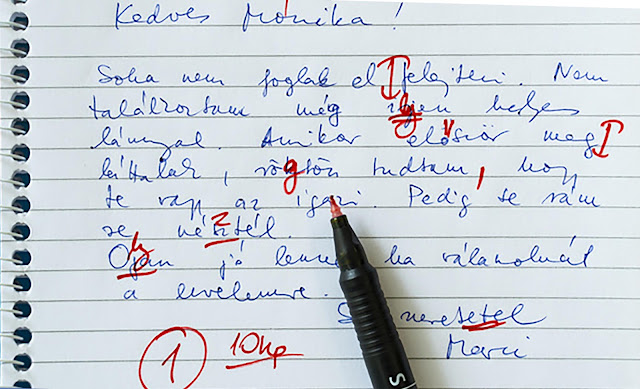 Kedves Mónika!
Soha nem foglak el felejteni. Nem
találkoztam még ilyen helyes
lánnyal. Amikor elősször meg
láttalak, rögtön tudtam, hogy
te vagy az igazi. Pedig te rám
se néztél.
Ojan jó lenne ha válaszolnál
a levelemre.
Sz meretetel
Marci
1 10kp
S